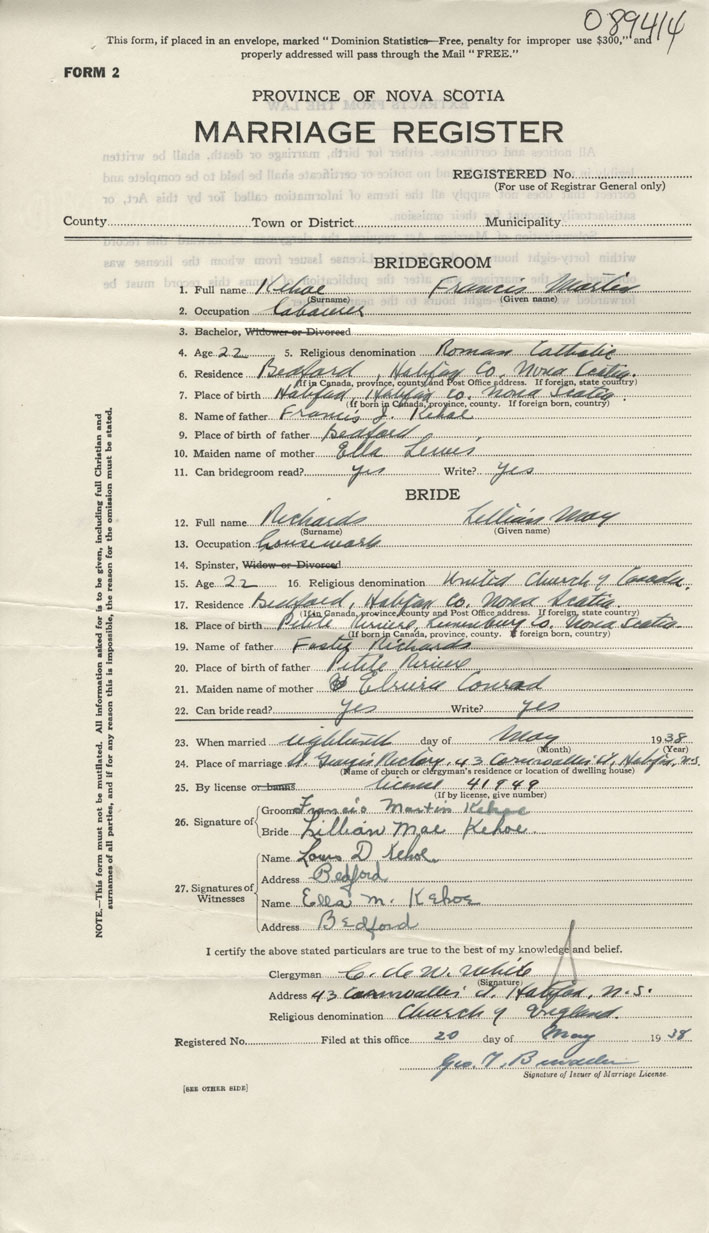 089414
This form, if placed in an envelope, marked "Dominion Statistics—Free, penalty for improper use $300," and
properly addressed will pass through the Mail "FREE."
FORM 2
PROVINCE OF NOVA SCOTIA
MARRIAGE REGISTER
REGISTERED No.
(For use of Registrar General only)
County Town or District Municipality
BRIDEGROOM
1. Full name Kehoe Francis Martin
(Surname) (Given name)
2. Occupation Labourer
3. Bachelor, Widower or Divorced
4. Age 22 5. Religious denomination Roman Catholic
6. Residence Bedford, Halifax Co. Nova Scotia.
(If in Canada, province, county and Post Office address. If foreign, state country)
7. Place of birth Halifax Halifax Co. Nova Scotia.
(If born in Canada, province, county. If foreign born, country)
8. Name of father Francis J. Kehoe
9. Place of birth of father Bedford
10. Maiden name of mother Ella Lewis
11. Can bridegroom read? yes Write? yes
BRIDE
12. Full name Richards Lillian May
(Surname) (Given name)
13. Occupation housework
14. Spinster, Widow or Divorced
15. Age 22 16. Religious denomination United Church of Canada.
17. Residence Bedford, Halifax Co. Nova Scotia.
(If in Canada, province, county and Post Office address. If foreign, state country)
18. Place of birth Petite Riviere, Lunenburg Co. Nova Scotia.
(If born in Canada, province, county. If foreign born, country)
19. Name of father Foster Richards
20. Place of birth of father Petite Riviere
21. Maiden name of mother Conrad
22. Can bride read? yes Write? yes
23. When married eighteenth day of May 1938
(Month) (Year)
24. Place of marriage St. Georges Rectory, 43 Cornwallis St, Halifax, N.S.
(Name of church or clergyman's residence or location of dwelling house)
25. By license or banns license 41949
(If by license, give number)
26. Signature of Groom Francis Martin Kehoe
Bride Lillian Mae Kehoe
27. Signatures of Witnesses
Name Louis D Kehoe
Address Bedford
Name Ella M. Kehoe
Address Bedford
I certify the above stated particulars are true to the best of my knowledge and belief.
Clergyman C. de W. White
(Signature)
Address 43 Cornwallis St. Halifax, N.S.
Religious denomination Church of England.
Registered No. Filed at this office 20 day of May 1938
Geo. T.
Signature of Issuer of Marriage License.
[SEE OTHER SIDE]
NOTE.—This form must not be mutilated. All information asked for is to be given, including full Christian and
surnames of all parties, and if for any reason this is impossible, the reason for the omission must be stated.